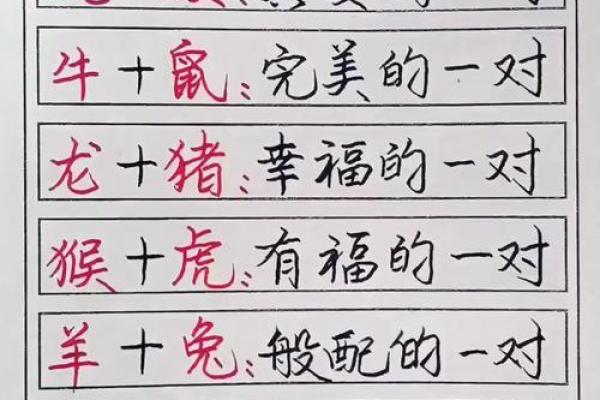 牛+鼠:完美的一对
龙+猪:幸福的一对
猴+虎:有福的一对
羊+兔:般配的一对